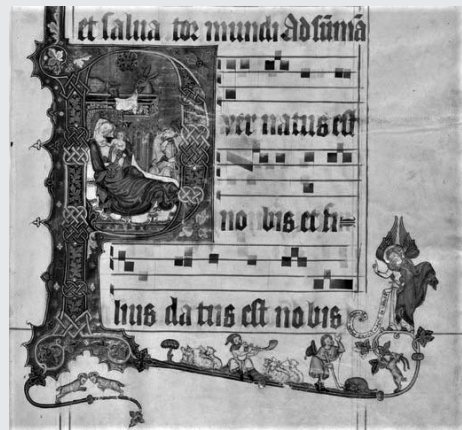 et salua tor mundi Ad sūmā
Puer natus est
no bis et fi=
lius da tus est nobis